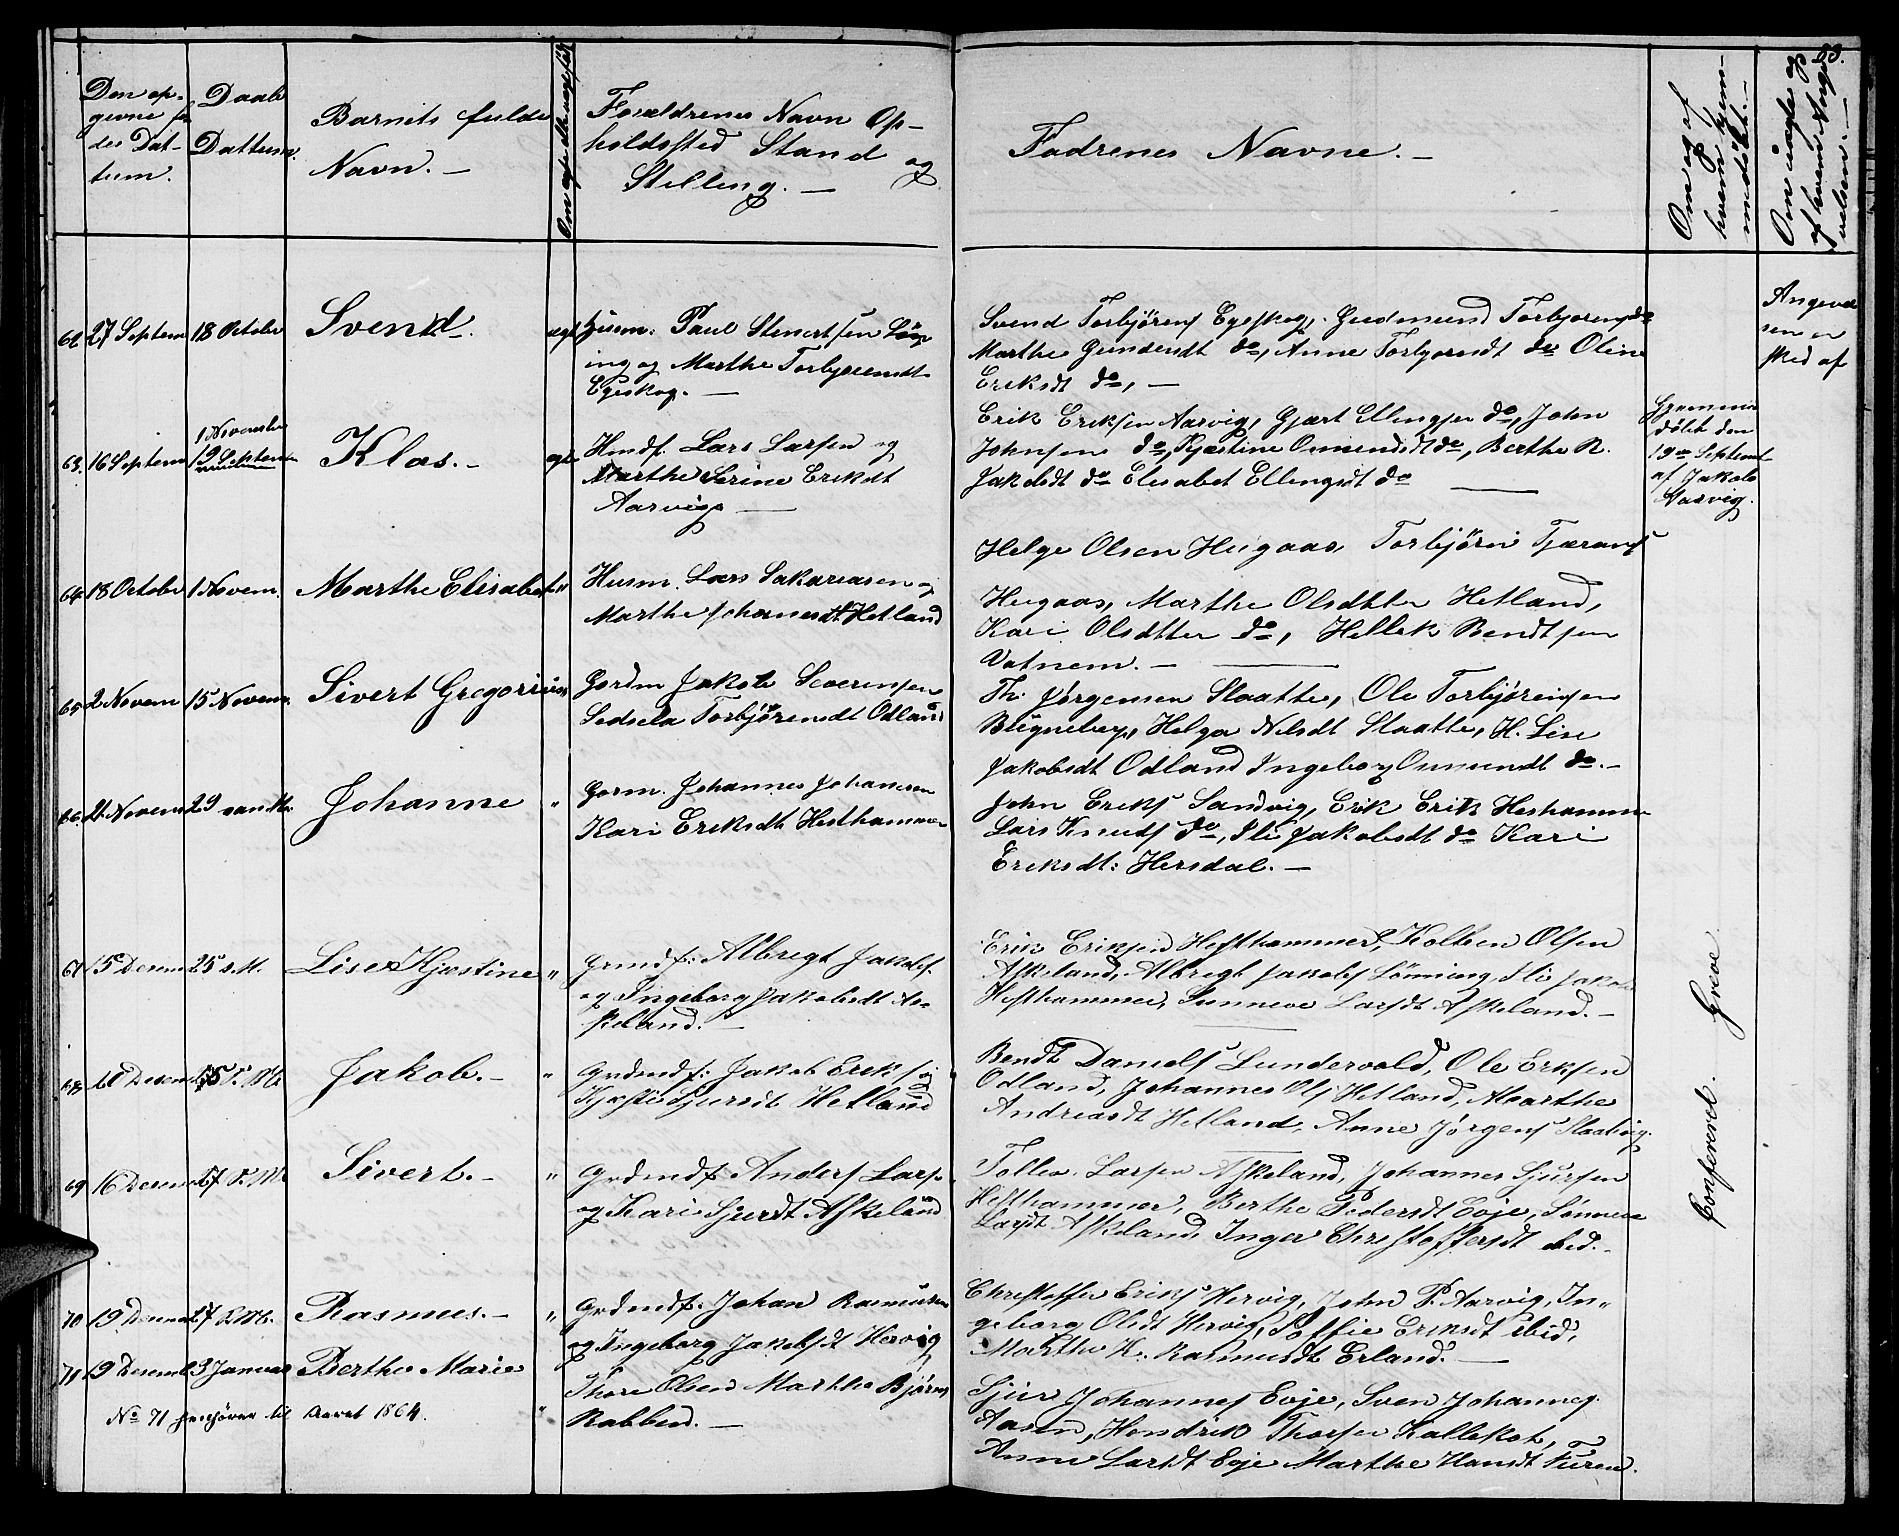 83.
Den op-
gevne fø
des Dat-
tum.
Daabs
Dattum.
Barnets fulde
Navn. -
Om ægte eller uægte fød
Forældrenes Navn Op-
holdssted Stand og
Stilling. -
Fadrenes Navne. -
Om og af
hvem hjem-
medøbt. -
Om og
af hvem Angi
velsen. -
62 27 Septem 18 October Svend. ægt Husm: Paul Stenertsen Løn
ing og Marthe Torbjørnsdt
Egeskog. -
Svend Torbjørns Egeskog, Gudmund Torbjørns do
Marthe Gundersdt do, Anne Torbjørnsdt do Oline
Eriksdt do, -
Angevel
sen er
sked af
63. 16 Septem 1 November
19 Septem Klas. - gr Hmdf. Lars Larsen og
Marthe Serine Eriksdt
Aarvig -
Erik Eriksen Aarvig, Gjert Ellingsen do, John
Johnsen do, Kjæstine Omundsdt do, Berthe R.
Jakobsdt do Elisabet Ellingsdt do -
Hjemme
døbt den
19de Septemb
af Jakob
Aarvig.
64 18 October 1 Novem. Marthe Elisabet " Husm. Lars Sakariasen og
Marthe Johanesdt Hetland
Helge Olsen Heigaas, Torbjørn Tjærans
Heigaas, Marthe Olsdtter Hetland,
Kari Olsdtter do, Hellek Bendtsen
Vatnem. -
65 2 Novem 15 Novem. Sivert Gregorius Gordm Jakob Severinsen
Sedsela Torbjørensdt Odland
Th. Jørgensen Slaatte, Ole Torbjørensen
Bligneberg, Helga Nilsdt Slaatte, H. Lise
Jakobsdt Odland Ingeborg Omundt do. -
66. 21 Novem 29 san Mt. Johanne " Gorm. Johannes Johanesen
Kari Eriksdt Hesthammer
John Eriks Sandvig, Erik Erik Heshamme
Lars Knuds do, Ili Jakobsdt do Kari
Eriksdt: Hersdal. -
67 15 Decem 25 s. M. Lise Kjæstine " Grmdf: Albregt Jakobs.
og Ingeborg Jakobsdt As-
keland. -
Erik Eriksen Hesthammer, Kolben Olsen
Askeland, Albregt Jakobs Lønning, Ili Jakobs
Hesthammer, Sunneve Larsdt Askeland. -
68 Decem S. Mt. Jakob. - " Grdmdf: Jakob Eriks og
Kjæsti Sjursdt Hetland
Bendt Daniels Lundervold, Ole Erksen
Odland, Johannes Ols Hetland, Marthe
Andreasdt Hetland, Anne Jørgens Slaatvig.
69 16 Decem 27 S. Mt Sivert. - " Grdmdf. Anders Lars.
og Kari Sjursdt Askeland
Tollev Larsen Askeland, Johannes Sjursen
Hesthammer, Berthe Pedersdt Eoje, Sønneve
Larsdt Askeland, Inger Christoffersdt ibid. -
70 19 Decemb 27 S. Mt. Rasmus. - " Grdmdf. Johan Rasmusen
og Ingeborg Jakobsdt Hervig
Christoffer Eriks Hervig, John P. Aarvig, In-
geborg Olsdt Hervig, Soffie Eriksdt ibid,
Marthe K. Rasmusdt Erland. -
71 9 Desemb 3 Januar Berthe Marie Thore Olsen Marthe Bjørns
No 71 henhører til Aaret 1864. " Rabben. -
Sjur Johannes Eoje, Sven Johannes.
Aasen, Hendrik Thorsen Kallekot,
Anne Larsdt Eoje Marthe Hansdt Furen.
Confereret. Greve.